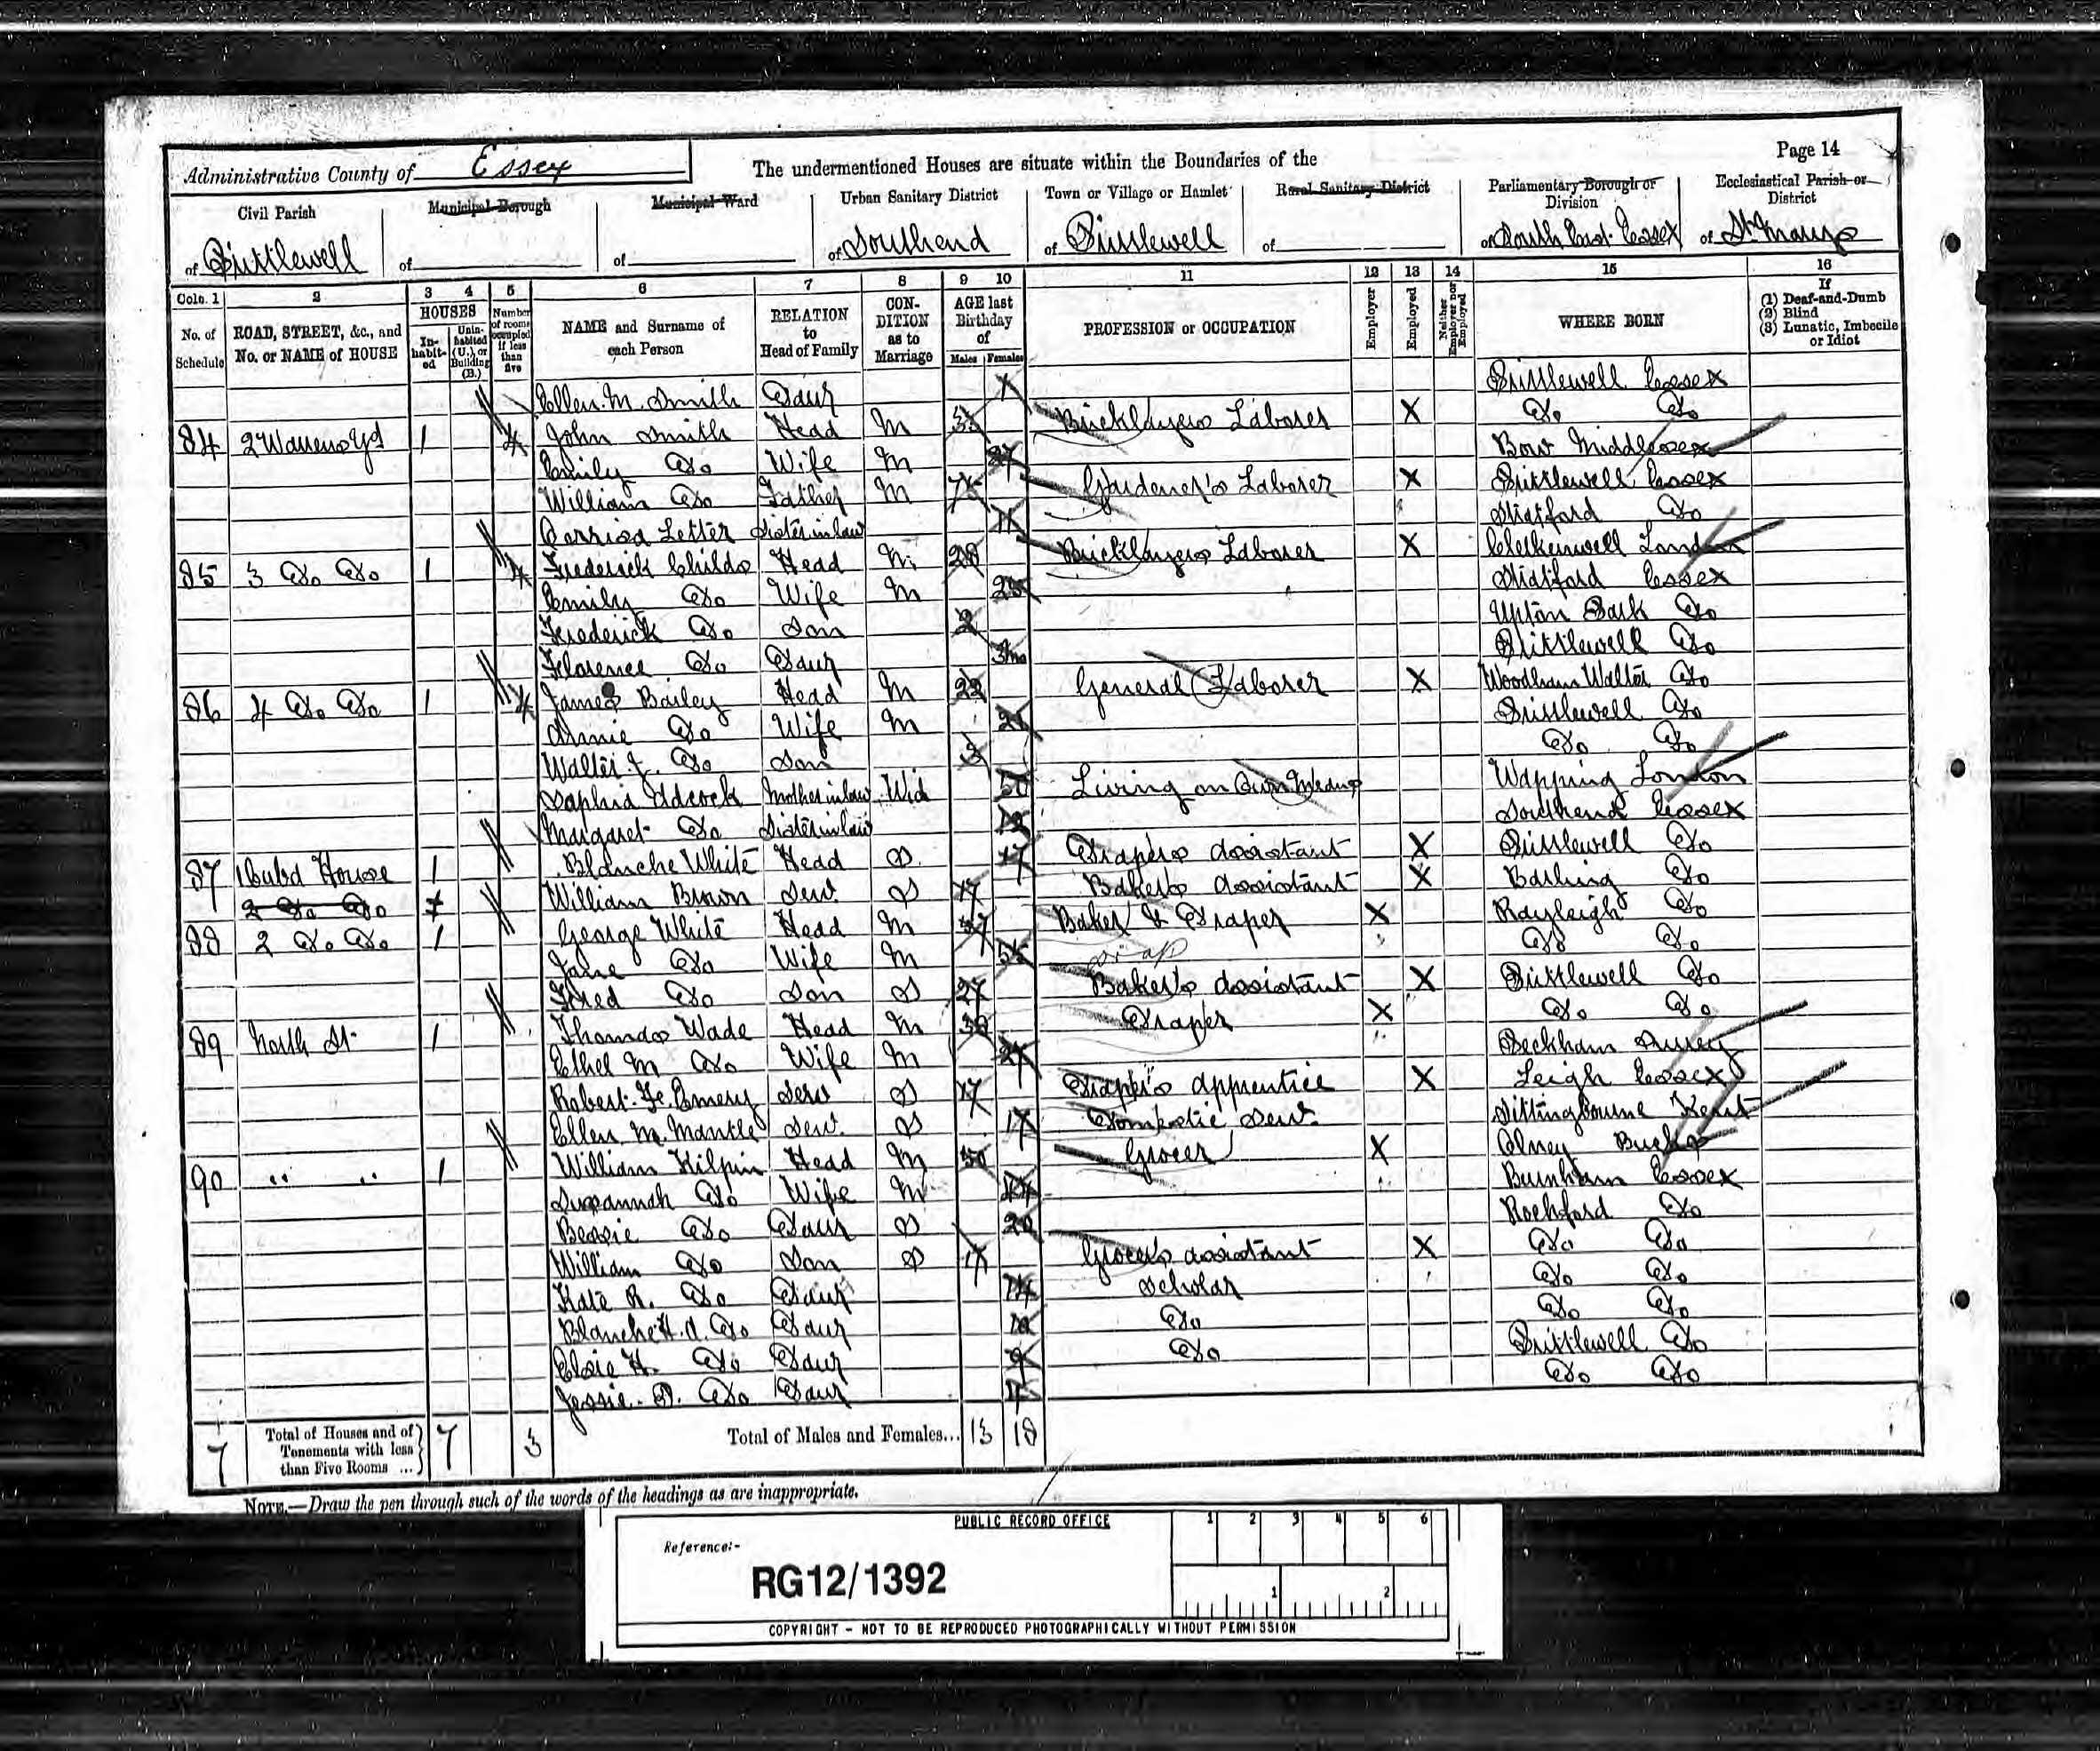 Page 14
Administrative County of Essex
The undermentioned Houses are situate within the Boundaries of the
Civil Parish of Prittlewell
Municipal Borough of
Municipal Ward of
Urban Sanitary District of Southend
Town or Village or Hamlet of Prittlewell
Rural Sanitary District of
Parliamentary Borough or Division of South East Essex
Ecclesiastical Parish or District of St Marys
Cols. 1 2 3 4 5 6 7 8 9 10 11 12 13 14 15 16
No. of Schedule
ROAD, STREET, &c., and No. or NAME of HOUSE
HOUSES
In-habit-ed
Unin-habited (U.), or Building (B.)
Number of rooms occupied if less than five
NAME and Surname of each Person
RELATION to Head of Family
CON-DITION as to Marriage
AGE last Birthday of
Males Females
PROFESSION or OCCUPATION
Employer
Employed
Neither Employer nor Employed
WHERE BORN
If
(1) Deaf-and-Dumb
(2) Blind
(3) Lunatic, Imbecile or Idiot
Ellen M. Smith Daur Prittlewell Essex
84 2 Warrens Yd 1 4 John Smith Head M Bricklayers Laborer X Do Do
Emily Do Wife M 27 Bow Middlesex
William Do Father M Gardener's Laborer X Prittlewell Essex
Letter Sister in law 11 Stratford Do
85 3 Do Do 1 4 Frederick Childs Head M 28 Bricklayers Laborer X Clerkenwell London
Emily Do Wife M 25 Stratford Essex
Frederick Do Son 2 Upton Park Do
Florence Do Daur 3mo Prittlewell Do
86 4 Do Do 1 4 James Bailey Head M 22 General Laborer X Woodham Walter Do
Annie Do Wife M 21 Prittlewell Do
Walter J. Do Son 3 Do Do
Sophia Adcock Mother in law Wid 50 Living on Own Means Wapping London
Margaret Do Sister in law 12 Southend Essex
87 1 House 1 Blanche White Head S 17 Drapers Assistant X Prittlewell Do
2 Do Do 1 William Brown Serv. S 17 Baker's Assistant X Barling Do
88 2 Do Do 1 George White Head M 57 Baker & Draper X Rayleigh Do
Jane Do Wife M Do Do
Fred Do Son S 27 Baker's Assistant X Prittlewell Do
89 North St 1 Thomas Wade Head M 30 Draper X Do Do
Ethel M Do Wife M Peckham Surrey
Robert Emery Serv S 17 Draper's Apprentice X Leigh Essex
Ellen M. Mantle Serv. S 17 Domestic Serv. Sittingbourne Kent
90 " " 1 William Kilpin Head M 50 Grocer X Olney Bucks
Susannah Do Wife M 44 Burnham Essex
Bessie Do Daur S 20 Rochford Do
William Do Son S 17 Grocer's Assistant X Do Do
Kate R. Do Daur 14 Scholar Do Do
Blanche H. A. Do Daur Do Do Do
Elsie H. Do Daur 9 Do Prittlewell Do
Jessie Do Daur Do Do
7 Total of Houses and of Tenements with less than Five Rooms ... 7 3 Total of Males and Females... 13 18
NOTE.—Draw the pen through such of the words of the headings as are inappropriate.
PUBLIC RECORD OFFICE
Reference:-
RG12/1392
1 2 3 4 5 6
1 2
COPYRIGHT - NOT TO BE REPRODUCED PHOTOGRAPHICALLY WITHOUT PERMISSION